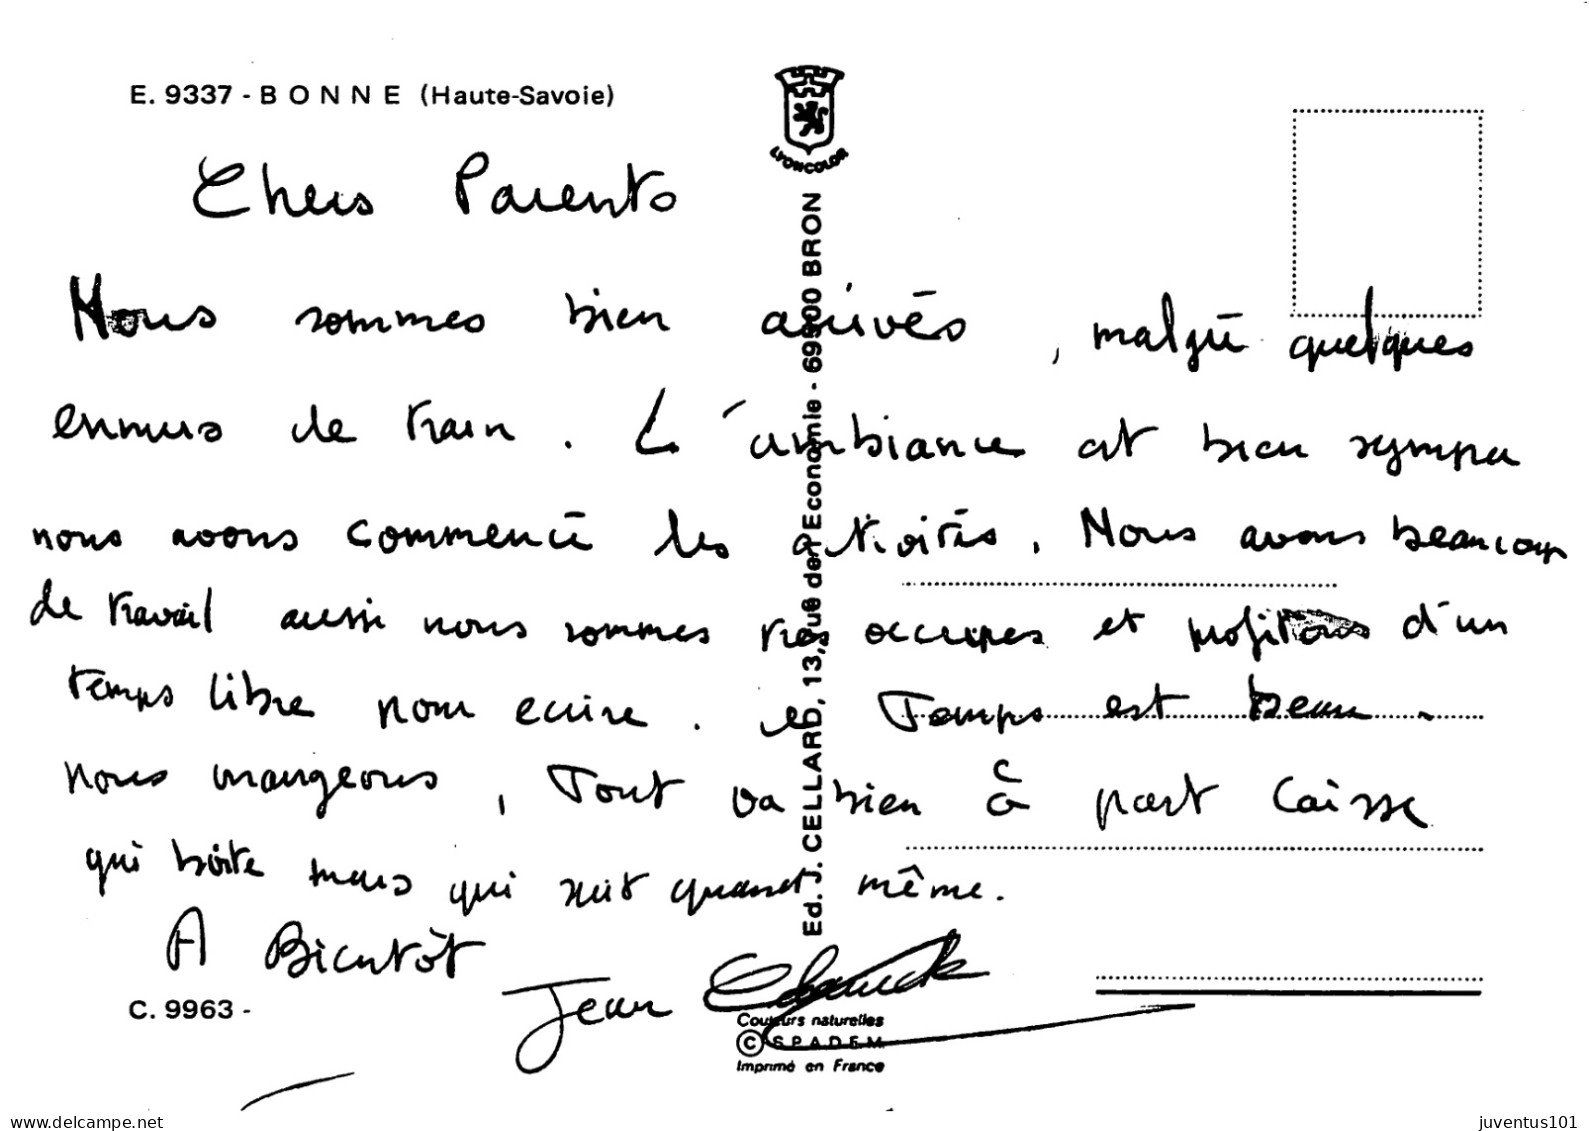 E. 9337 - BONNE (Haute-Savoie)
LYONCOLOR
Chers Parents
Nous sommes bien arrivés, malgré quelques
ennuis de train. L'ambiance est bien sympa
nous avons commencé les activités. Nous avons beaucoup
de travail aussi nous sommes très occupes et profitons d'un
temps libre pour ecrire. le Temps est beau.
nous mangeons, Tout va bien à part
qui boite mais qui suit quand même.
A Bientôt
Jean
C. 9963 -
Ed. J. CELLARD, 13, rue de l'Economie - 69500 BRON
Couleurs naturelles
© S.P.A.D.E.M.
Imprimé en France
www.delcampe.net
juventus101